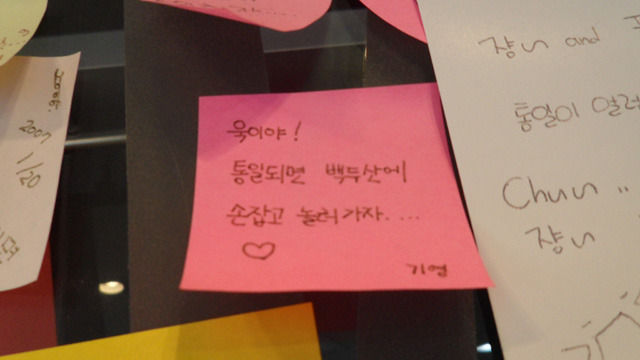 욱이야!
통일되면 백두산에
손잡고 놀러가자....
기영
쟝니 and
통일이
Chun ..
쟝니
2007
1/20